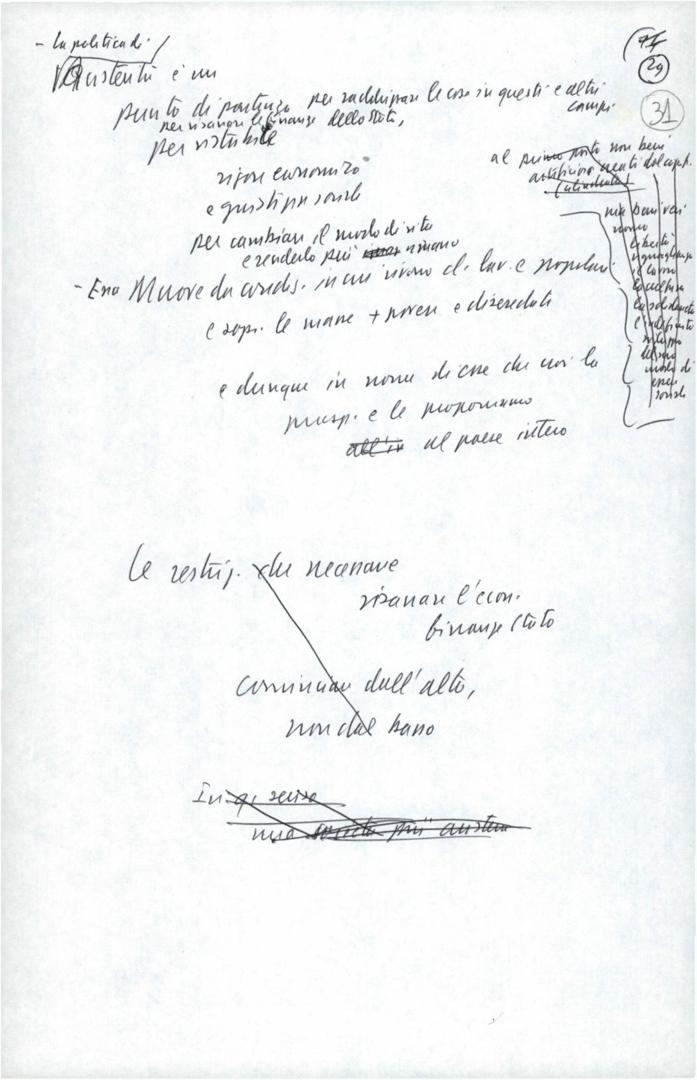 - la politica di
l'Austerità è un
punto di partenza per raddrizzare le cose in questi e altri
campi
per risanare le finanze dello Stato,
per ristabilire
rigore economico
e giustizia sociale
per cambiare il modo di vita
e renderlo più umano
- Essa Muove da in cui vivono cl. lav. e popolari
e sopr. le masse + povere e diseredate
e dunque in nome di cose che noi
e le proponiamo
all'in al paese intero
74
29
31
al primo posto non beni
artificiosi
ma beni veri
come
libertà
uguaglianza
il lavoro
la cultura
la solidarietà
sviluppo
modo di
essere
sociale
Le restriz. che necessarie
risanare l'econ.
finanze Stato
Cominciare dall'alto,
non dal basso
In qs. senso
una società più austera